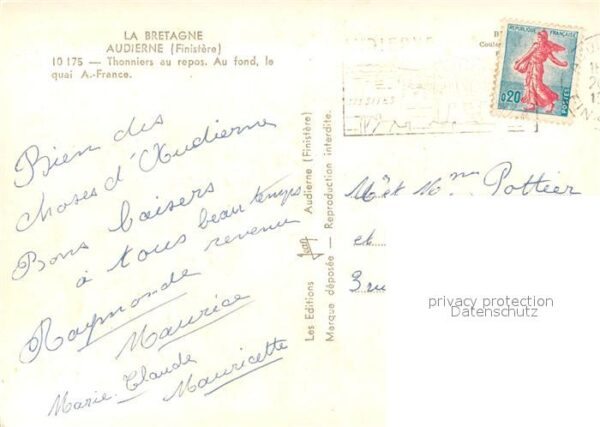 LA BRETAGNE
AUDIERNE (Finistère)
10 175 — Thonniers au repos. Au fond, le
quai A.-France.
Bien des
choses d'Audierne
Bons baisers
à tous beau temps
revenu
Raymonde
Maurice
Marie-Claude
Mauricette
Les Editions Jean Audierne (Finistère)
Marque déposée — Reproduction interdite.
AUDIERNE
REPUBLIQUE FRANÇAISE
0,20
POSTES
Mr et Mme Pottier
et
3 rue
privacy protection
Datenschutz